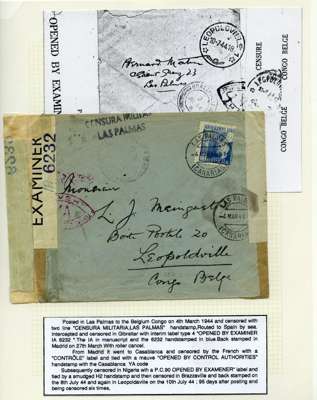 LEOPOLDVILLE
10-7-44 18
CENSURE
CONGO BELGE
CENSURE
CONGO BELGE
OPENED BY EXAMINER
CENSURA MILITAR
LAS PALMAS
EXAMINER
6232
6232
Monsieur
L. J.
Boite Postale 20
Léopoldville
Congo Belge
Posted in Las Palmas to the Belgium Congo on 4th March 1944 and censored with
two line "CENSURA MILITARIA,LAS PALMAS" handstamp,Routed to Spain by sea.
Intercepted and censored in Gibraltar with interim label type 4 "OPENED BY EXAMINER
IA 6232 ".The IA in manuscript and the 6232 handstamped in blue.Back stamped in
Madrid on 27th March With roller cancel.
From Madrid it went to Casablanca and censored by the French with a
"CONTRÔLE" label and tied with a mauve "OPENED BY CONTROL AUTHORITIES"
handstamp with the Casablanca YA code
Subsequently censored in Nigeria with a P.C.90 OPENED BY EXAMINER" label and
tied by a smudged H2 handstamp and then censored in Brazzaville and back stamped on
the 8th July 44 and again in Leopoldville on the 10th July 44 ; 95 days after posting and
being censored six times,